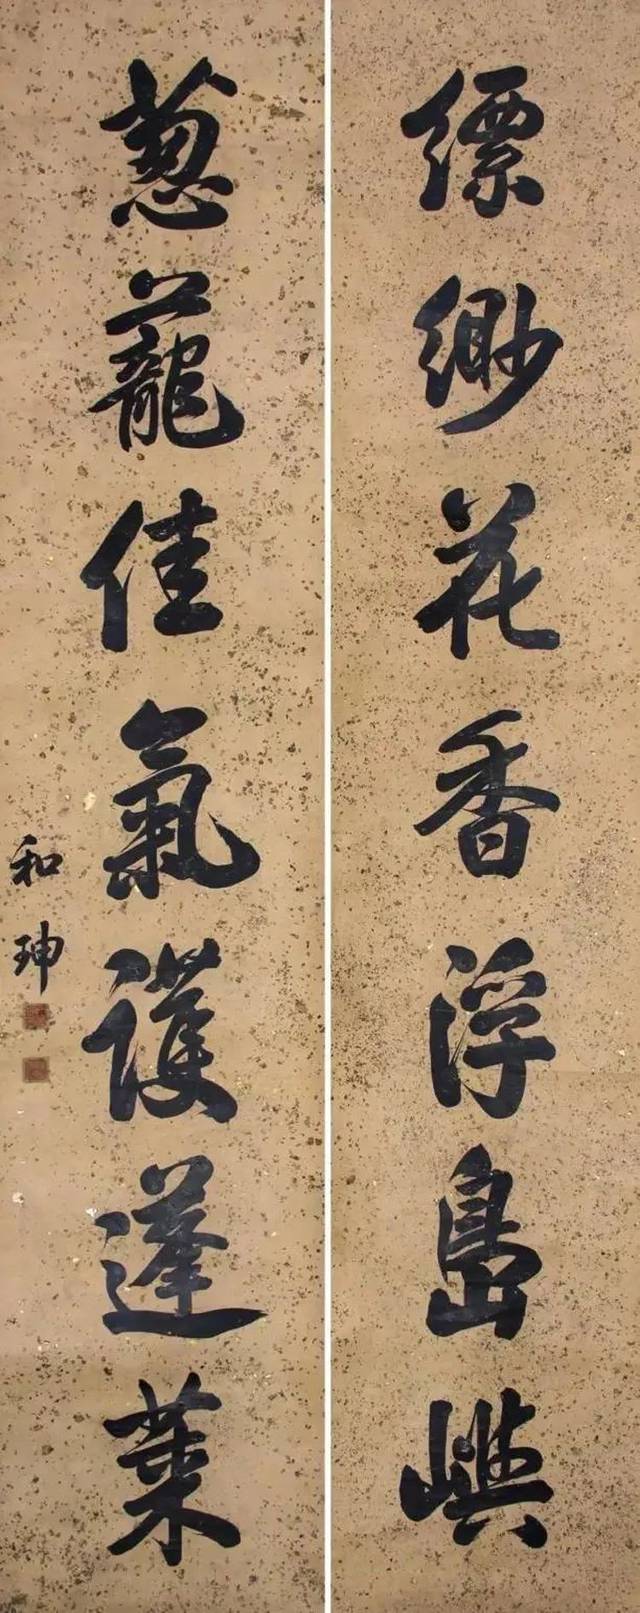 縹緲花香浮島嶼
蔥蘢佳氣護蓬萊
和珅